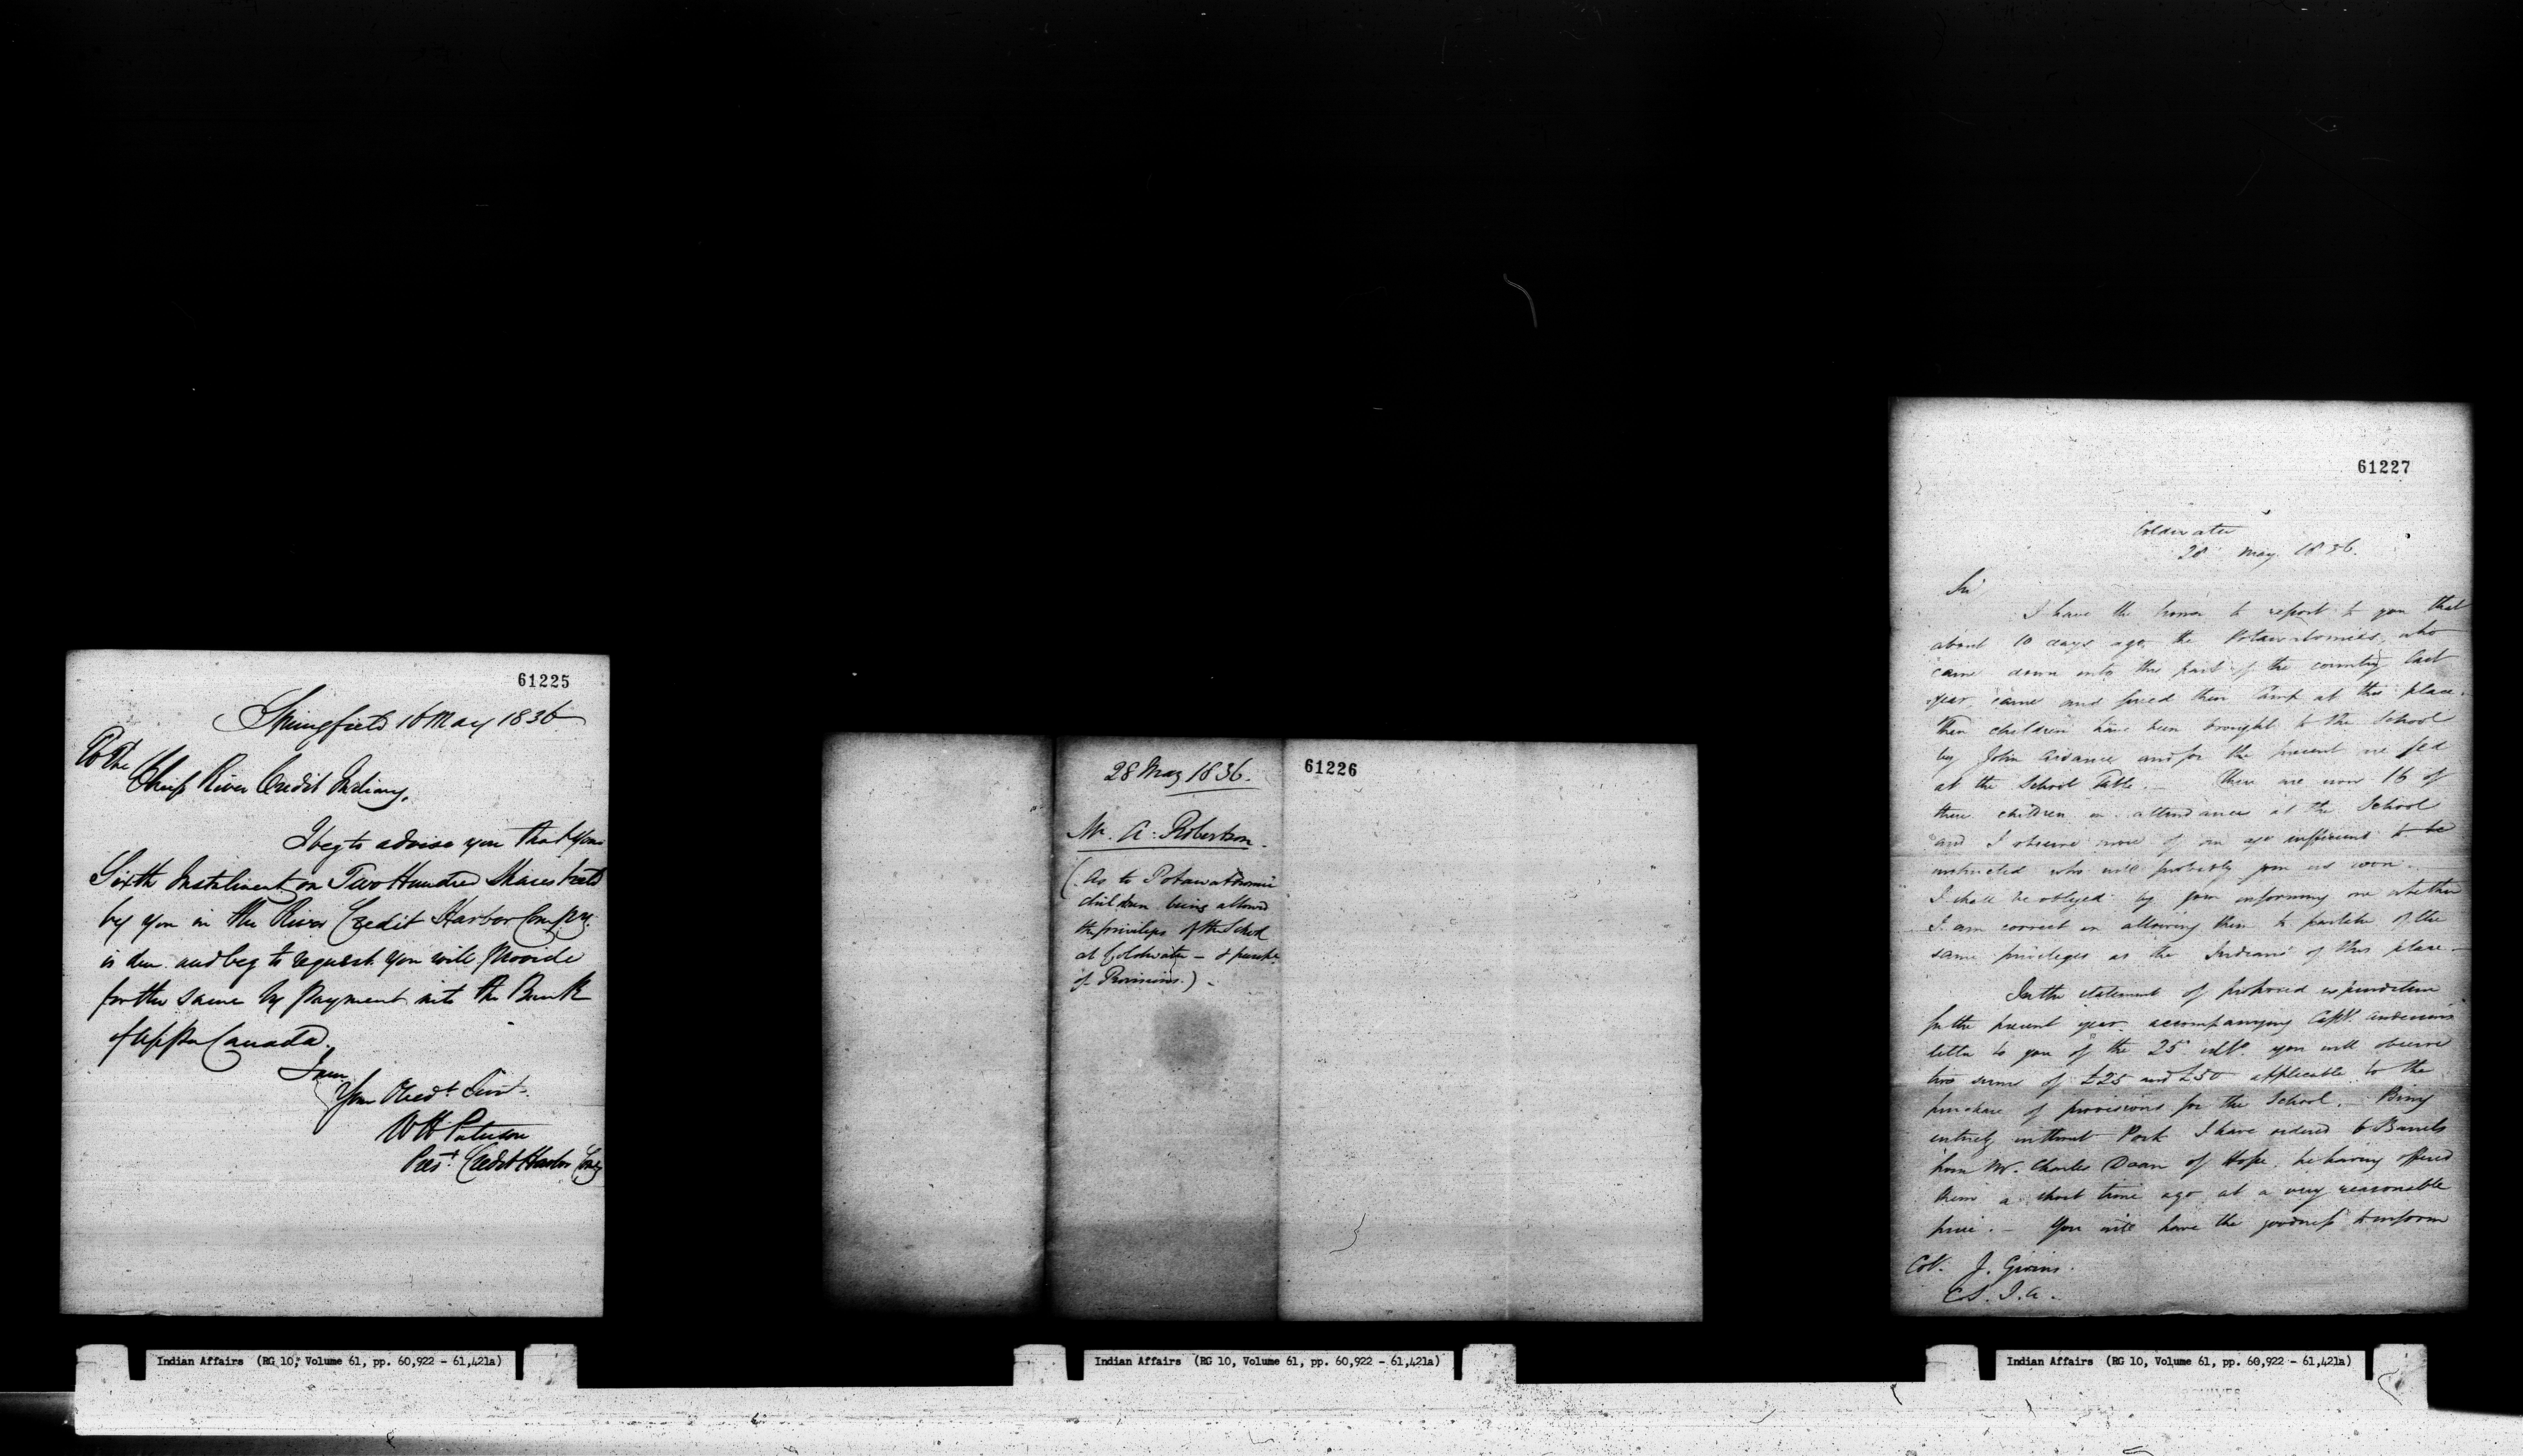 61225
Springfield 16 May 1836
To the
Chiefs River Credit Indians,
I beg to advise you that your
Sixth Instalment on Two Hundred Shares held
by you in the River Credit Harbor Compy.
is due and beg to request you will provide
for the same by payment into the Bank
of Upper Canada.
I am
Your Obedt Servt.
W H Paterson
Prest. Credit Harbor Compy
Indian Affairs (RG 10, Volume 61, pp. 60,922 - 61,421a)
28 May 1836.
Mr. A. Robertson.
(As to Potawatomie
children being allowed
the privileges of the School
at Coldwater - & purchse
of Provisions.) -
61226
Indian Affairs (RG 10, Volume 61, pp. 60,922 - 61,421a)
61227
Coldwater
28 May 1836.
Sir
I have the honor to report to you that
about 10 days ago, the Potawatomies, who
came down into this part of the country last
year, came and fixed their Camp at this place.
Their children have been brought to the School
by John and for the present are fed
at the School Table. - There are now 16 of
these children in attendance at the School
and I observe more of an age sufficient to be
instructed who will probably join us soon. -
I shall be obliged by your informing me whether
I am correct in allowing them to partake of the
same privileges as the Indians of this place. -
In the statement of proposed expenditure
for the present year, accompanying Capt. Anderson's
letter to you of the 25 ulto. you will observe
two sums of £25 and £50 applicable to the
purchase of provisions for the School. Being
entirely without Pork I have ordered 6 Barrels
from Mr. Charles Doan of Hope, he having offered
them a short time ago at a very reasonable
price. - You will have the goodness to inform
Col. J. Givins.
C.S.I.A.
Indian Affairs (RG 10, Volume 61, pp. 60,922 - 61,421a)